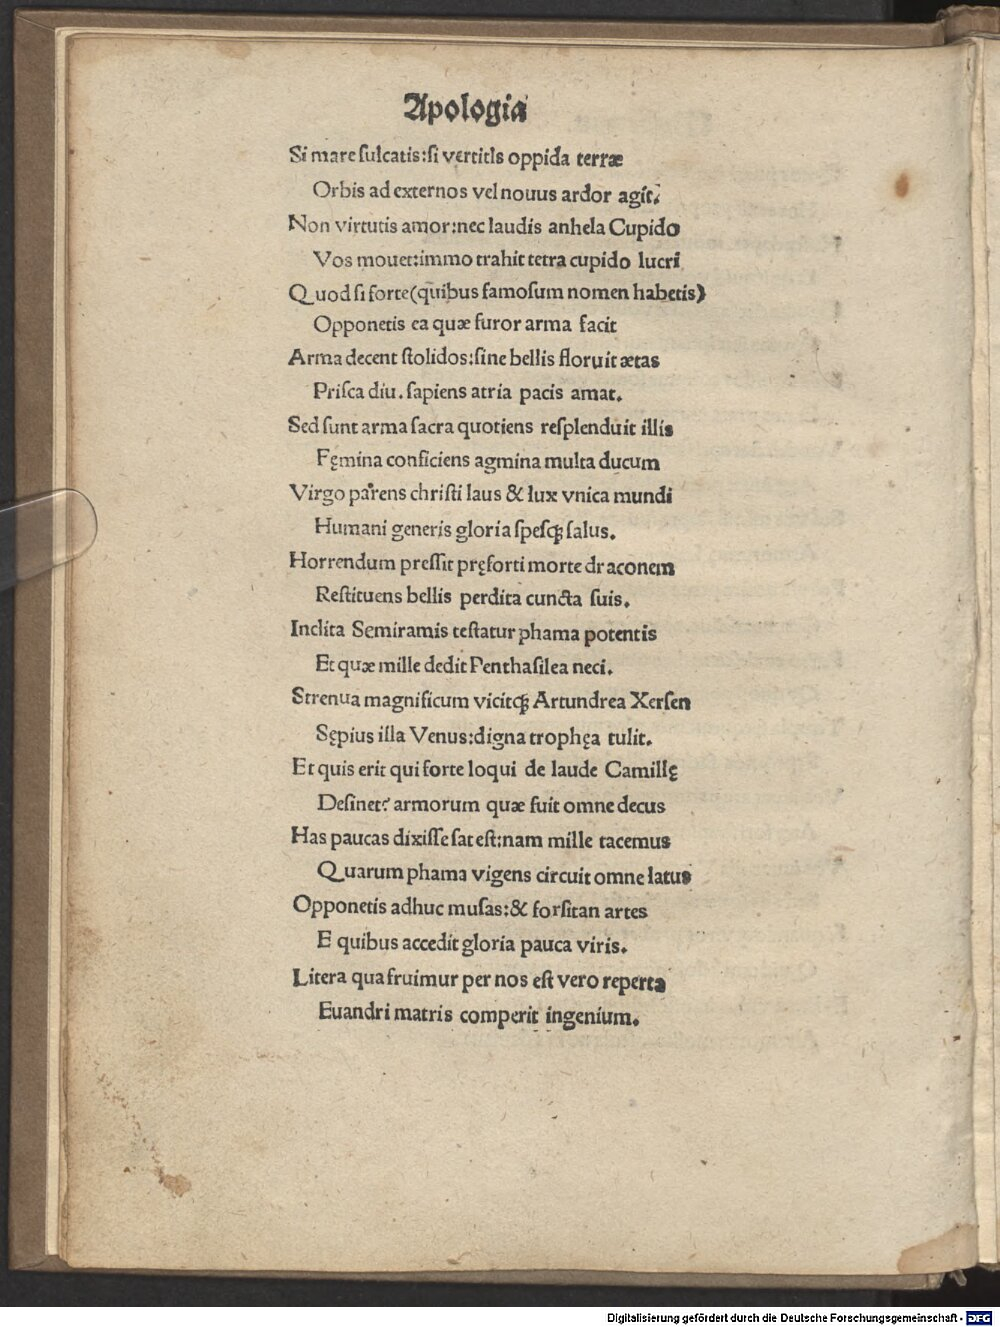 Apologia
Si mare sulcatis:si vertitis oppida terræ
Orbis ad externos vel nouus ardor agit?
Non virtutis amor:nec laudis anhela Cupido
Vos mouet:immo trahit tetra cupido lucri
Quod si forte(quibus famosum nomen habetis)
Opponetis ea quæ furor arma facit
Arma decent stolidos:sine bellis floruit ætas
Prisca diu. sapiens atria pacis amat.
Sed sunt arma sacra quotiens resplenduit illis
Fęmina conficiens agmina multa ducum
Virgo parens christi laus & lux vnica mundi
Humani generis gloria spesqꝫ salus.
Horrendum pressit pręforti morte draconem
Restituens bellis perdita cuncta suis.
Inclita Semiramis testatur phama potentis
Et quæ mille dedit Penthasilea neci.
Strenua magnificum vicitqꝫ Artundrea Xersen
Sępius illa Venus:digna trophęa tulit.
Et quis erit qui forte loqui de laude Camillę
Desinet? armorum quæ fuit omne decus
Has paucas dixisse sat est:nam mille tacemus
Quarum phama vigens circuit omne latus
Opponetis adhuc musas:& forsitan artes
E quibus accedit gloria pauca viris.
Litera qua fruimur per nos est vero reperta
Euandri matris comperit ingenium.
Digitalisierung gefördert durch die Deutsche Forschungsgemeinschaft - DFG